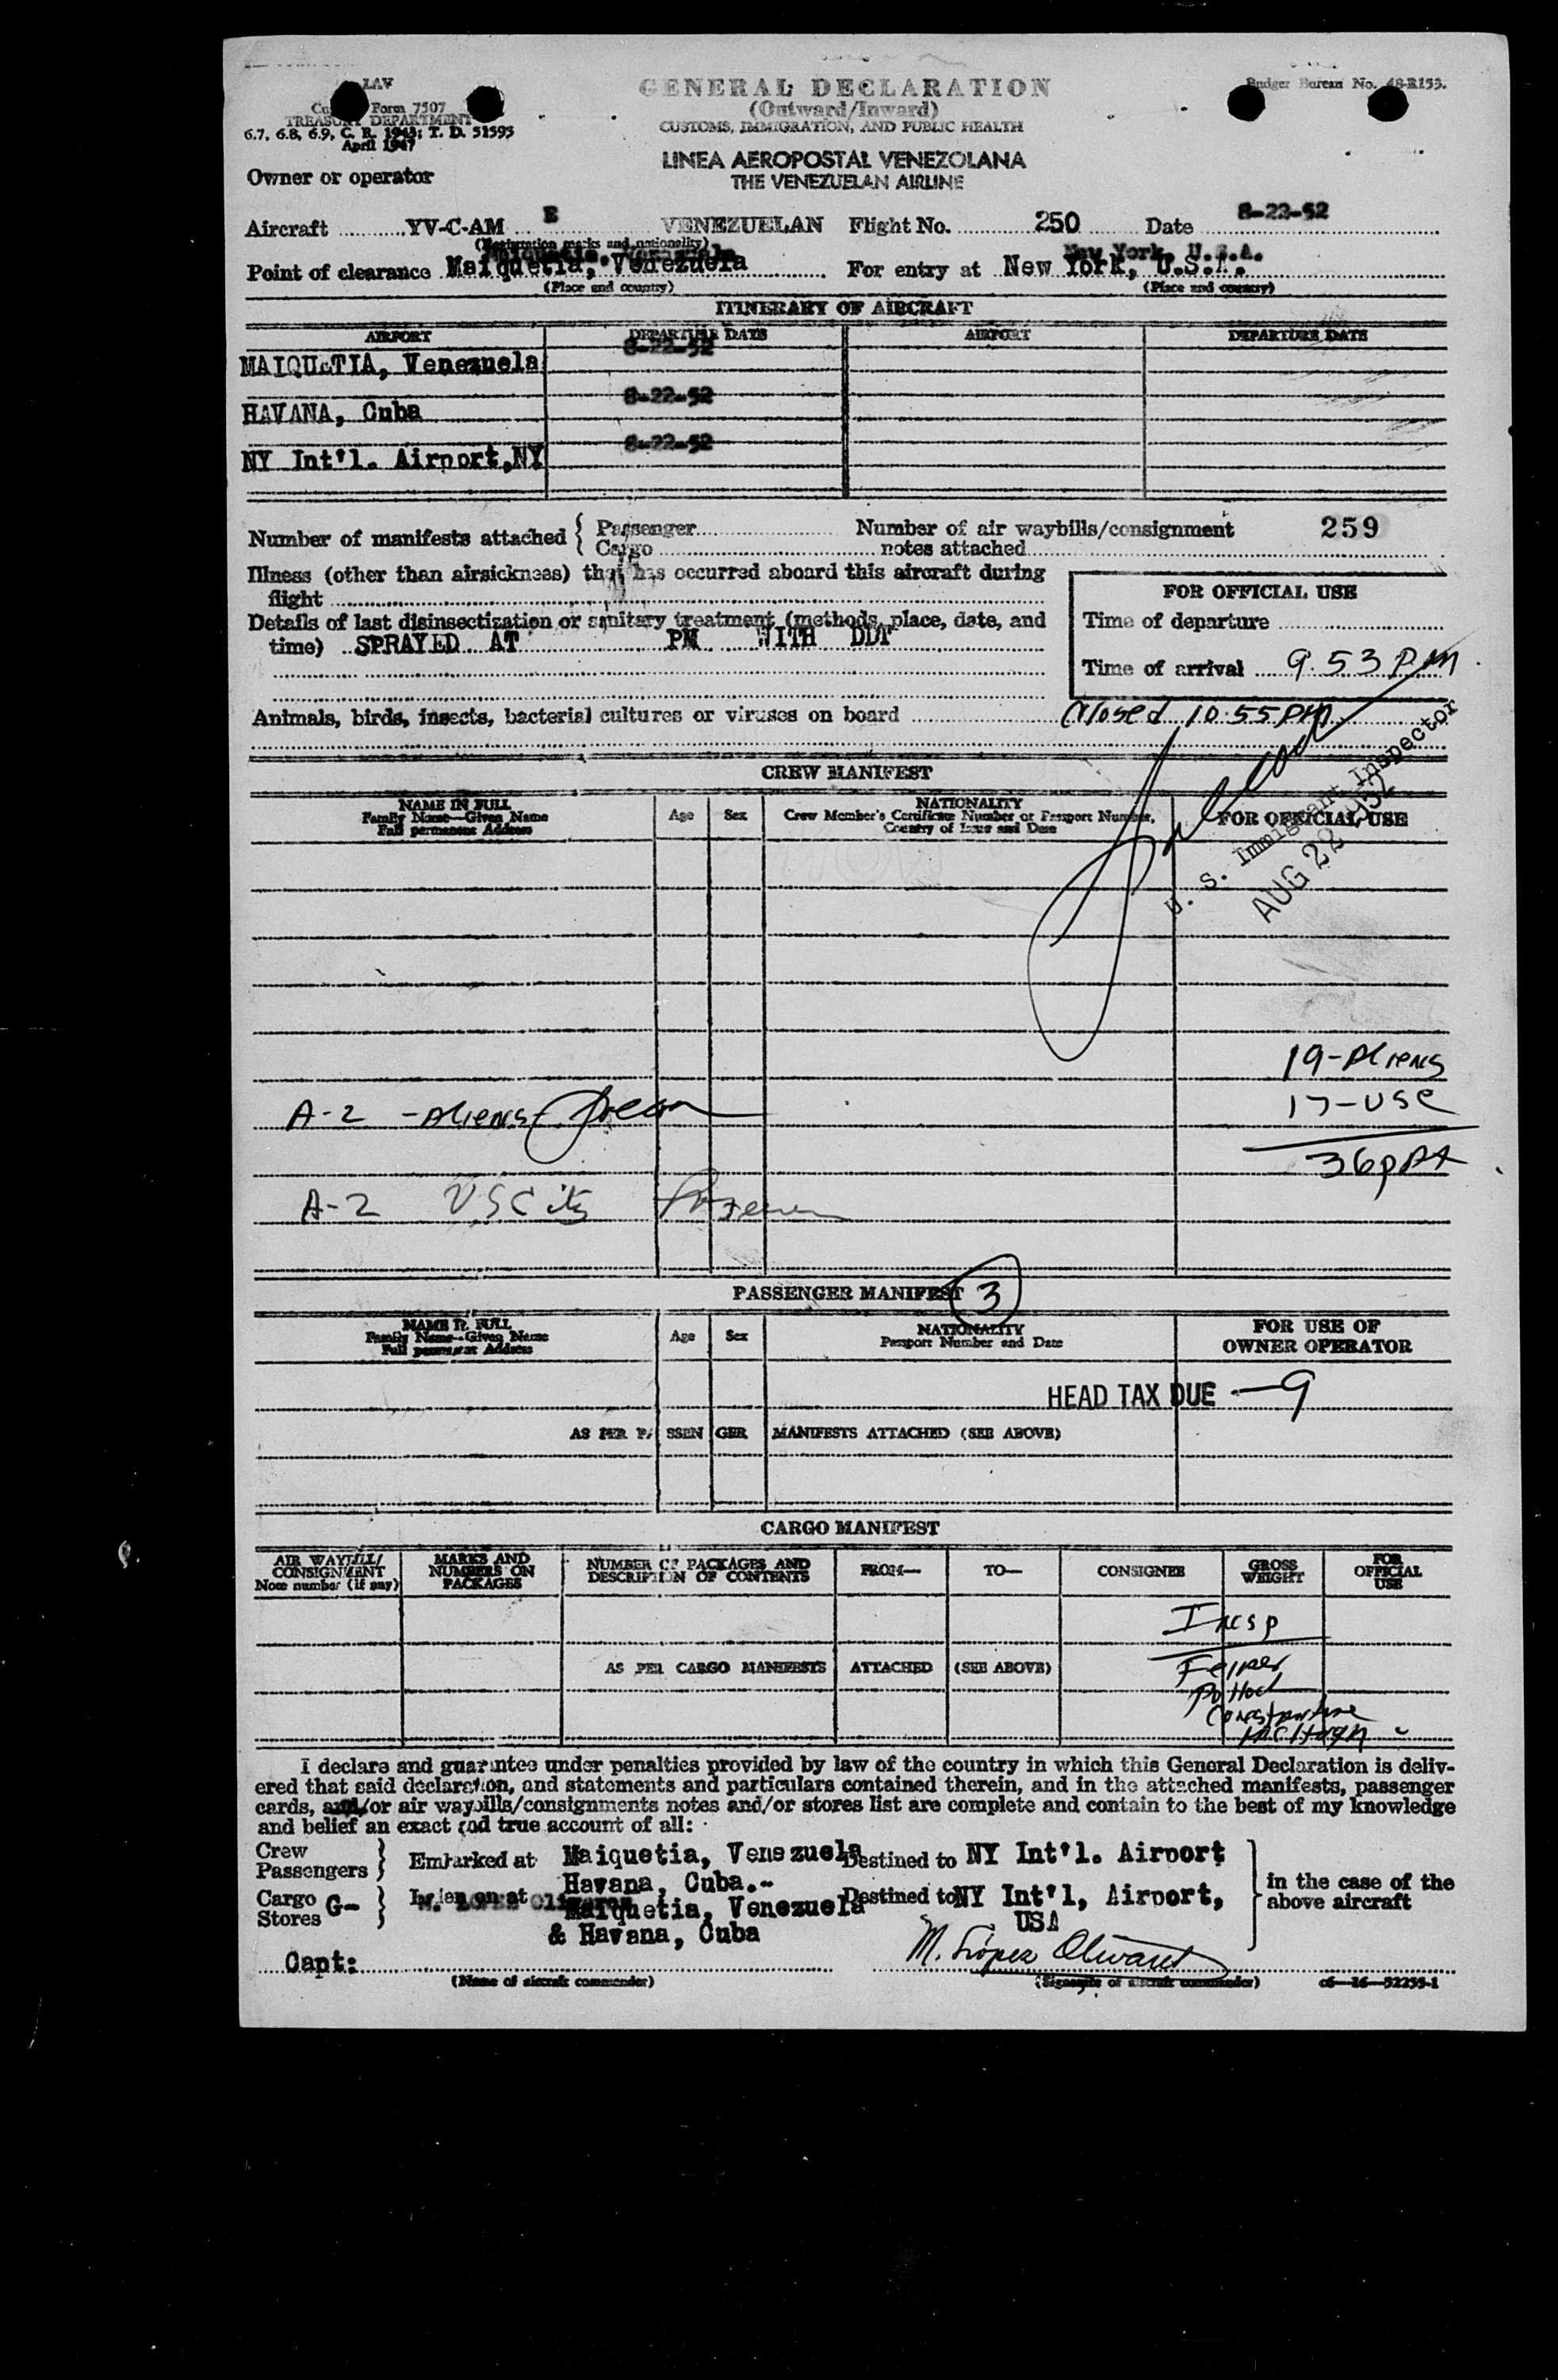 LAV
GENERAL DECLARATION
(Outward/Inward)
CUSTOMS, IMMIGRATION, AND PUBLIC HEALTH
Budget Bureau No. 48-R153.
Form 7507
TREASURY DEPARTMENT
6.7, 6.8, 6.9, C. R. 1943; T. D. 51595
April 1947
LINEA AEROPOSTAL VENEZOLANA
THE VENEZUELAN AIRLINE
Owner or operator
Aircraft YV-C-AM E VENEZUELAN Flight No. 250 Date 8-22-52
(Registration marks and nationality)
Maiquetia, Venezuela New York, U.S.A.
Point of clearance Maiquetia, Venezuela For entry at New York, U.S.A.
(Place and country) (Place and country)
ITINERARY OF AIRCRAFT
AIRPORT DEPARTURE DATE AIRPORT DEPARTURE DATE
MAIQUETIA, Venezuela 8-22-52
HAVANA, Cuba 8-22-52
NY Int'l. Airport,NY 8-22-52
Number of manifests attached { Passenger
Cargo
Number of air waybills/consignment
notes attached
259
Illness (other than airsickness) that has occurred aboard this aircraft during
flight
Details of last disinsectization or sanitary treatment (methods, place, date, and
time) SPRAYED AT PM WITH DDT
FOR OFFICIAL USE
Time of departure
Time of arrival 9.53 PM
Animals, birds, insects, bacterial cultures or viruses on board
Closed 10:55 PM
U. S. Immigrant Inspector
AUG 22 1952
CREW MANIFEST
NAME IN FULL
Family Name—Given Name
Full permanent Address
Age Sex
NATIONALITY
Crew Member's Certificate Number or Passport Number,
Country of Issue and Date
FOR OFFICIAL USE
19-Aliens
A-2 -Aliens-
17-USC
36
A-2 US Cits
PASSENGER MANIFEST 3
NAME IN FULL
Family Name—Given Name
Full permanent Address
Age Sex
NATIONALITY
Passport Number and Date
FOR USE OF
OWNER OPERATOR
HEAD TAX DUE — 9
AS PER PASSENGER MANIFESTS ATTACHED (SEE ABOVE)
CARGO MANIFEST
AIR WAYBILL/
CONSIGNMENT
Note number (if any)
MARKS AND
NUMBERS ON
PACKAGES
NUMBER OF PACKAGES AND
DESCRIPTION OF CONTENTS
FROM— TO— CONSIGNEE
GROSS
WEIGHT
FOR
OFFICIAL
USE
Insp
AS PER CARGO MANIFESTS ATTACHED (SEE ABOVE)
I declare and guarantee under penalties provided by law of the country in which this General Declaration is deliv-
ered that said declaration, and statements and particulars contained therein, and in the attached manifests, passenger
cards, and/or air waybills/consignments notes and/or stores list are complete and contain to the best of my knowledge
and belief an exact and true account of all:
Crew
Passengers } Embarked at Maiquetia, Venezuela Destined to NY Int'l. Airport
Havana, Cuba.-
Cargo G-
Stores } Laden on at Maiquetia, Venezuela Destined to NY Int'l, Airport,
USA
& Havana, Cuba
in the case of the
above aircraft
Capt: M. López Olivares
(Name of aircraft commander) (Signature of aircraft commander) c6—16—52255-1